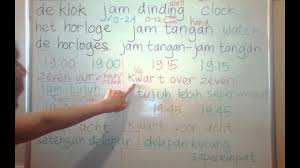 de klok jam dinding wall clock
0-24 0-12 hand
het horloge jam tangan watch
de horloges jam tangan-jam tangan
19:00 19:00 19.15 19.15
zeven uur kwart over zeven
jam tujuh tujuh lebih seperempat
19.45 19.45
acht kwart voor acht
setengah delapan delapan kurang
seperempat